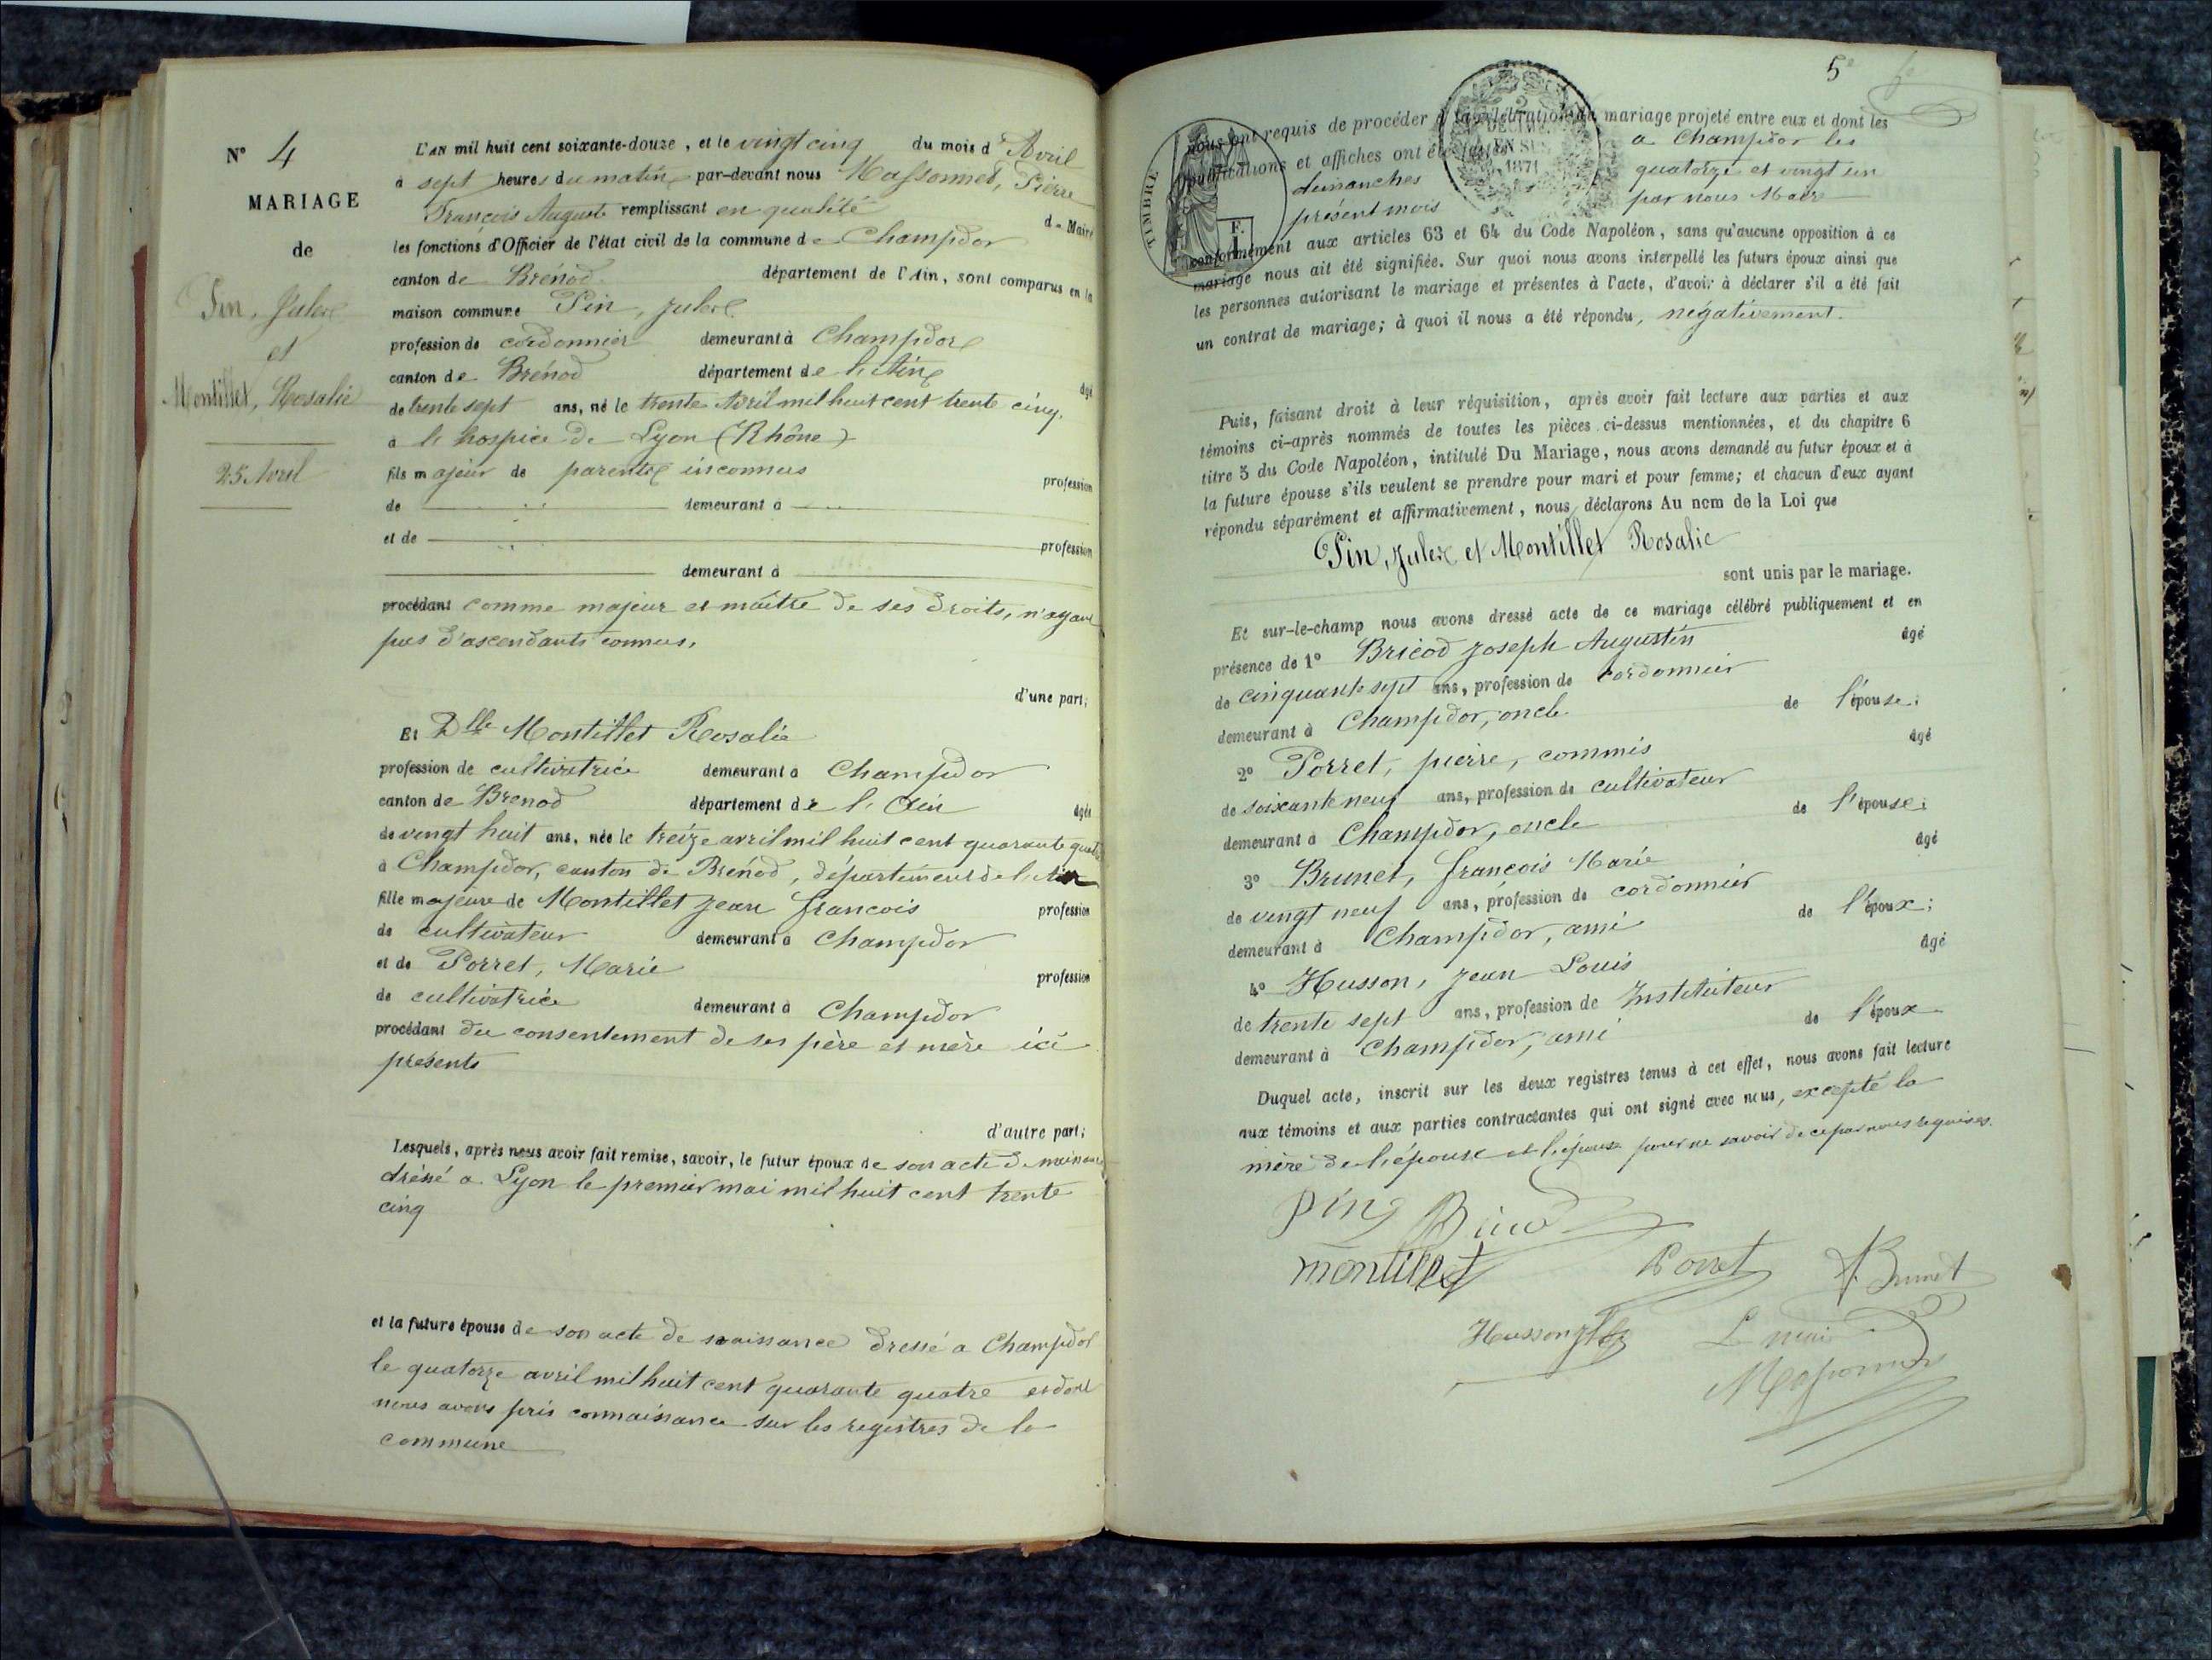 N° 4
MARIAGE
de
Pin, Jules
et
Montillet, Rosalie
25 Avril
L'AN mil huit cent soixante-douze, et le vingt cinq du mois d'Avril
à sept heures du matin par-devant nous Massonnet, Pierre
François Auguste remplissant en qualité de Maire
les fonctions d'Officier de l'état civil de la commune de Champdor
canton de Brénod département de l'Ain, sont comparus en la
maison commune Pin, Jules
profession de cordonnier demeurant à Champdor
canton de Brénod département de l'Ain âgé
de trente sept ans, né le trente Avril mil huit cent trente cinq,
à l'hospice de Lyon (Rhône)
fils majeur de parents inconnus profession
de demeurant à
et de profession
demeurant à
procédant comme majeur et maître de ses droits, n'ayant
pas d'ascendants connus,
d'une part;
Et Dlle Montillet Rosalie
profession de cultivatrice demeurant à Champdor
canton de Brenod département de l'Ain âgée
de vingt huit ans, née le treize avril mil huit cent quarante quatre
à Champdor, canton de Brénod, département de l'Ain
fille majeure de Montillet Jean François profession
de cultivateur demeurant à Champdor
et de Porret, Marie profession
de cultivatrice demeurant à Champdor
procédant du consentement de ses père et mère ici
présents
d'autre part;
Lesquels, après nous avoir fait remise, savoir, le futur époux de son acte de naissance
dréssé a Lyon le premier mai mil huit cent trente
cinq
et la future épouse de son acte de naissance dressé a Champdor
le quatorze avril mil huit cent quarante quatre et dont
nous avons pris connaissance sur les registres de la
commune
5e
TIMBRE
F.
1
2
DÉCIMES
EN SUS
1871
nous ont requis de procéder à la célébration du mariage projeté entre eux et dont les
publications et affiches ont été faites a Champdor les
dimanches quatorze et vingt un
présent mois par nous Maire
conformément aux articles 63 et 64 du Code Napoléon, sans qu'aucune opposition à ce
mariage nous ait été signifiée. Sur quoi nous avons interpellé les futurs époux ainsi que
les personnes autorisant le mariage et présentes à l'acte, d'avoir à déclarer s'il a été fait
un contrat de mariage; à quoi il nous a été répondu, négativement.
Puis, faisant droit à leur réquisition, après avoir fait lecture aux parties et aux
témoins ci-après nommés de toutes les pièces ci-dessus mentionnées, et du chapitre 6
titre 5 du Code Napoléon, intitulé Du Mariage, nous avons demandé au futur époux et à
la future épouse s'ils veulent se prendre pour mari et pour femme; et chacun d'eux ayant
répondu séparément et affirmativement, nous déclarons Au nom de la Loi que
Pin, Jules et Montillet Rosalie
sont unis par le mariage.
Et sur-le-champ nous avons dressé acte de ce mariage célébré publiquement et en
présence de 1° Bricod Joseph Augustin âgé
de cinquante sept ans, profession de cordonnier
demeurant à Champdor, oncle de l'épouse;
2° Porret, pierre, commis âgé
de soixante neuf ans, profession de cultivateur
demeurant à Champdor, oncle de l'épouse;
3° Brunet, François Marie âgé
de vingt neuf ans, profession de cordonnier
demeurant à Champdor, ami de l'époux;
4° Husson, Jean Louis âgé
de trente sept ans, profession de Instituteur
demeurant à Champdor, ami de l'époux
Duquel acte, inscrit sur les deux registres tenus à cet effet, nous avons fait lecture
aux témoins et aux parties contractantes qui ont signé avec nous, excepté la
mère de l'épouse et l'épouse pour ne savoir de ce par nous requises.
pin Bricod
montillet Porret Brunet
Husson Le maire
Massonnet